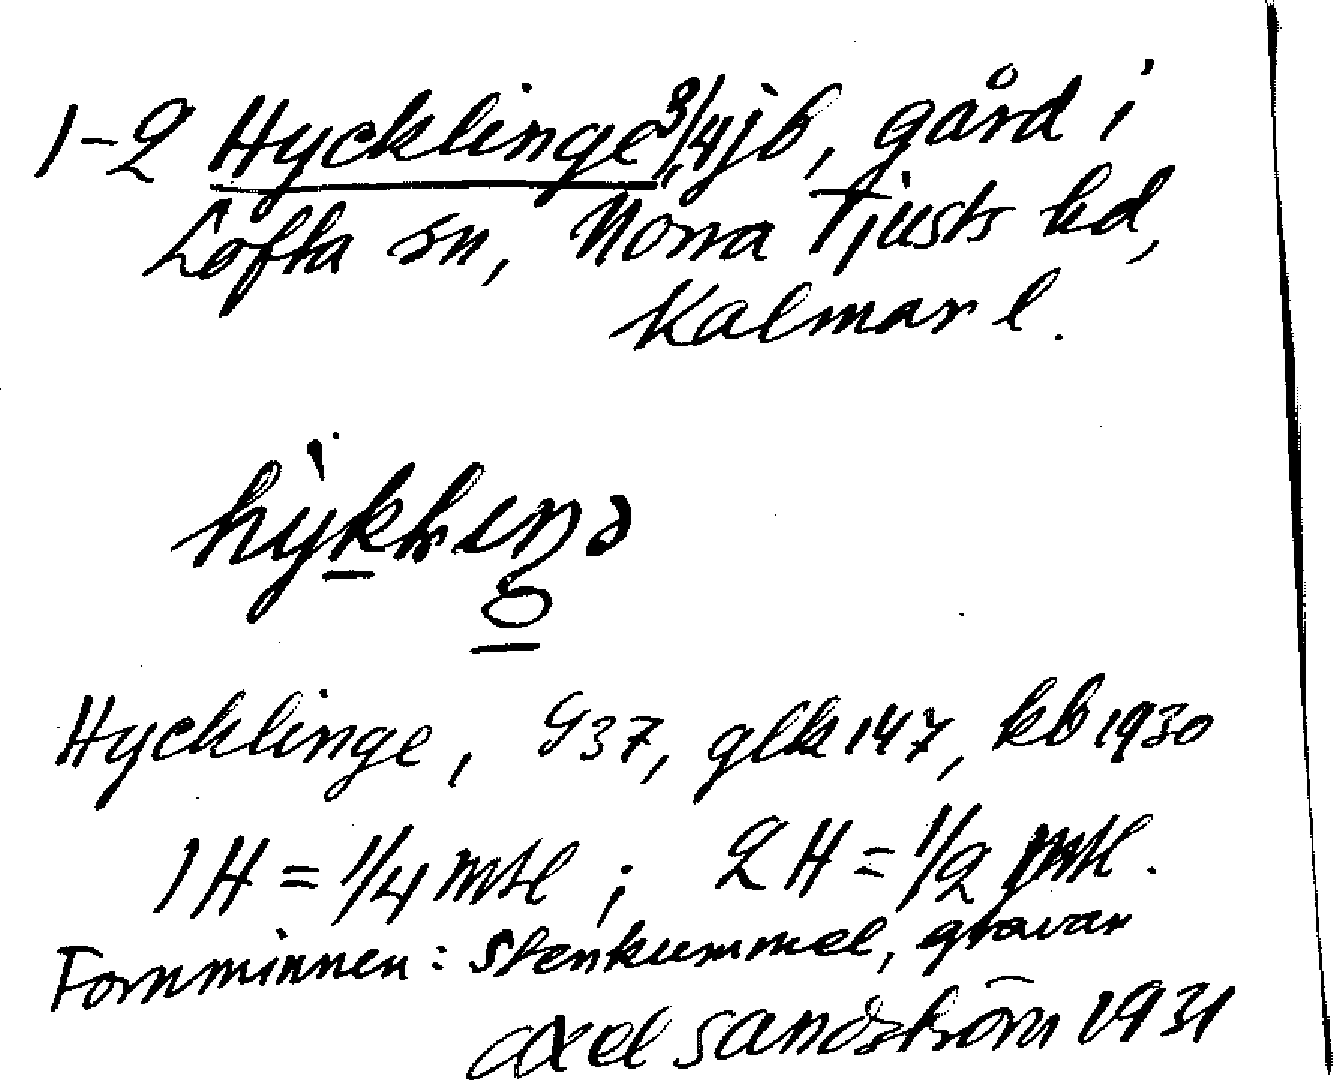 1-2 Hycklinge 3/4 jb, gård i
Lofta sn, Norra Tjusts hd,
Kalmar l.
Hycklinge, G37, glk 147, kb 1930
1 H = 1/4 mtl ; 2 H = 1/2 mtl.
Fornminnen: Stenkummel, gravar
Axel Sandström 1931